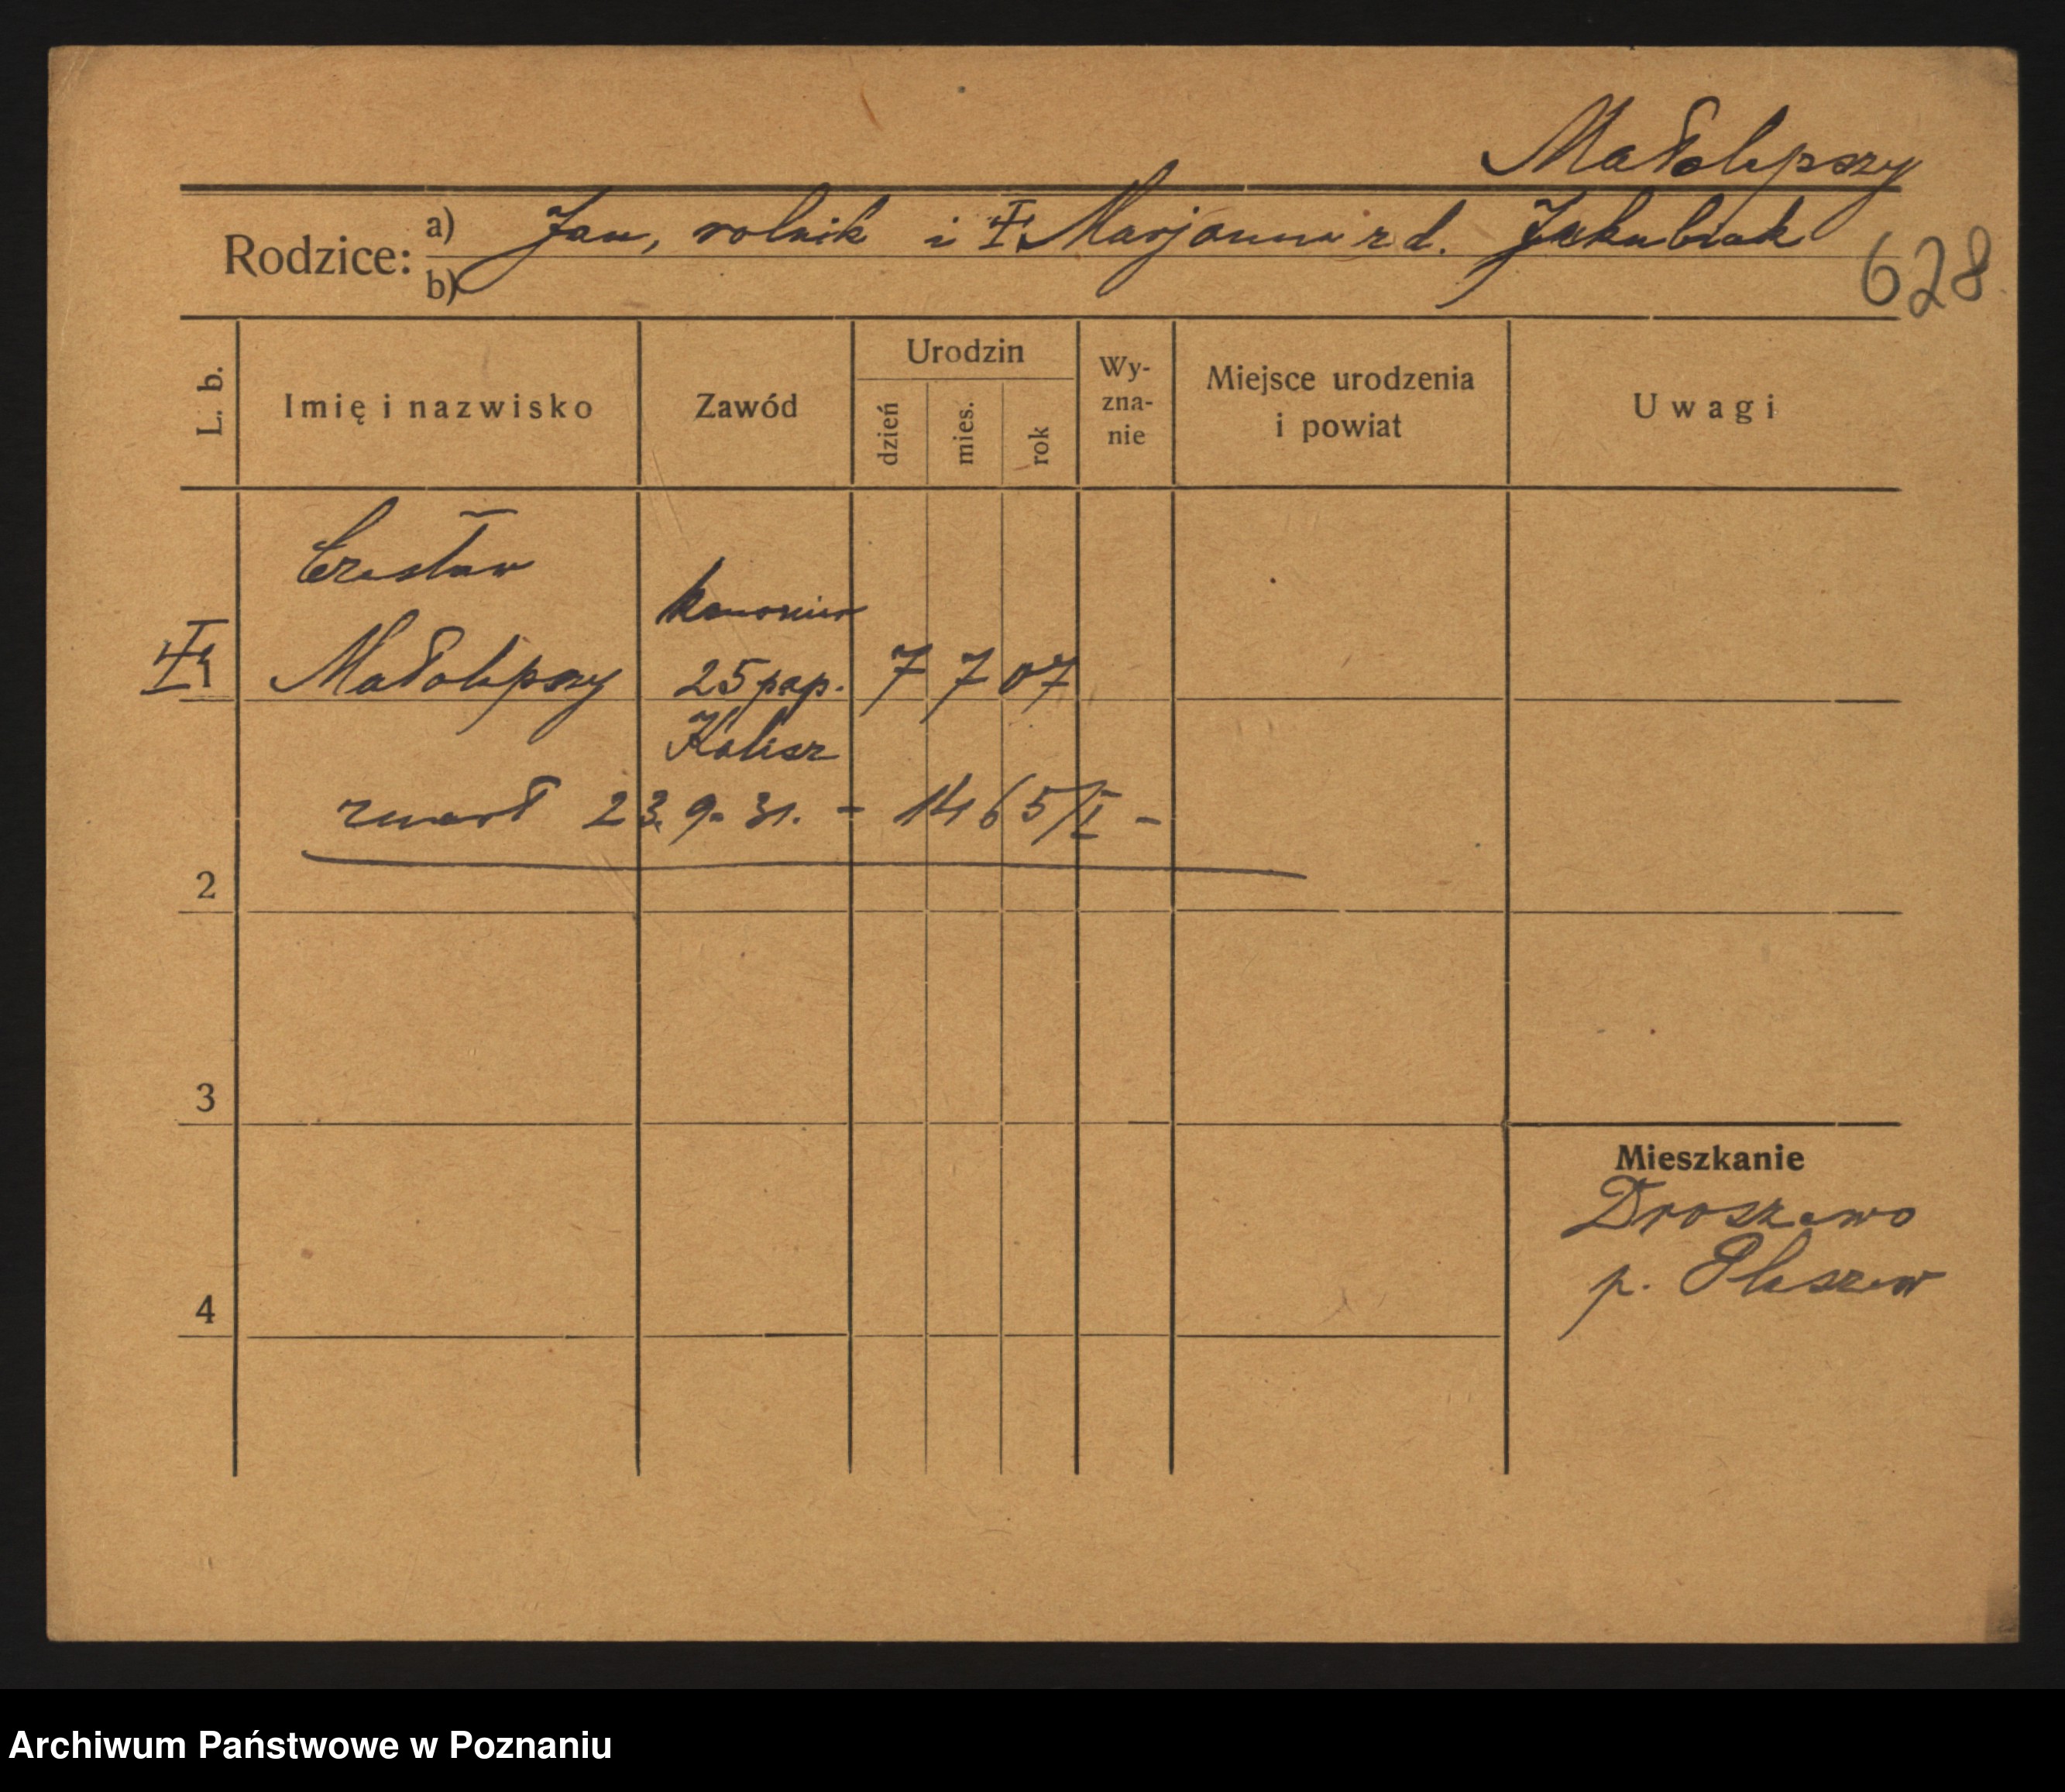 Małolepszy
Rodzice: a) Jan, rolnik i Marjanna z d. Jakubiak
b)
628
L. b. Imię i nazwisko Zawód Urodzin dzień mies. rok Wy-zna-nie Miejsce urodzenia i powiat Uwagi
Czesław
kanonier
Małolepszy 25 pap. 7 7 07
Kalisz
zmarł 23. 9. 31. - 1465/I -
2
3
Mieszkanie
Droszewo
p. Pleszew
4
Archiwum Państwowe w Poznaniu